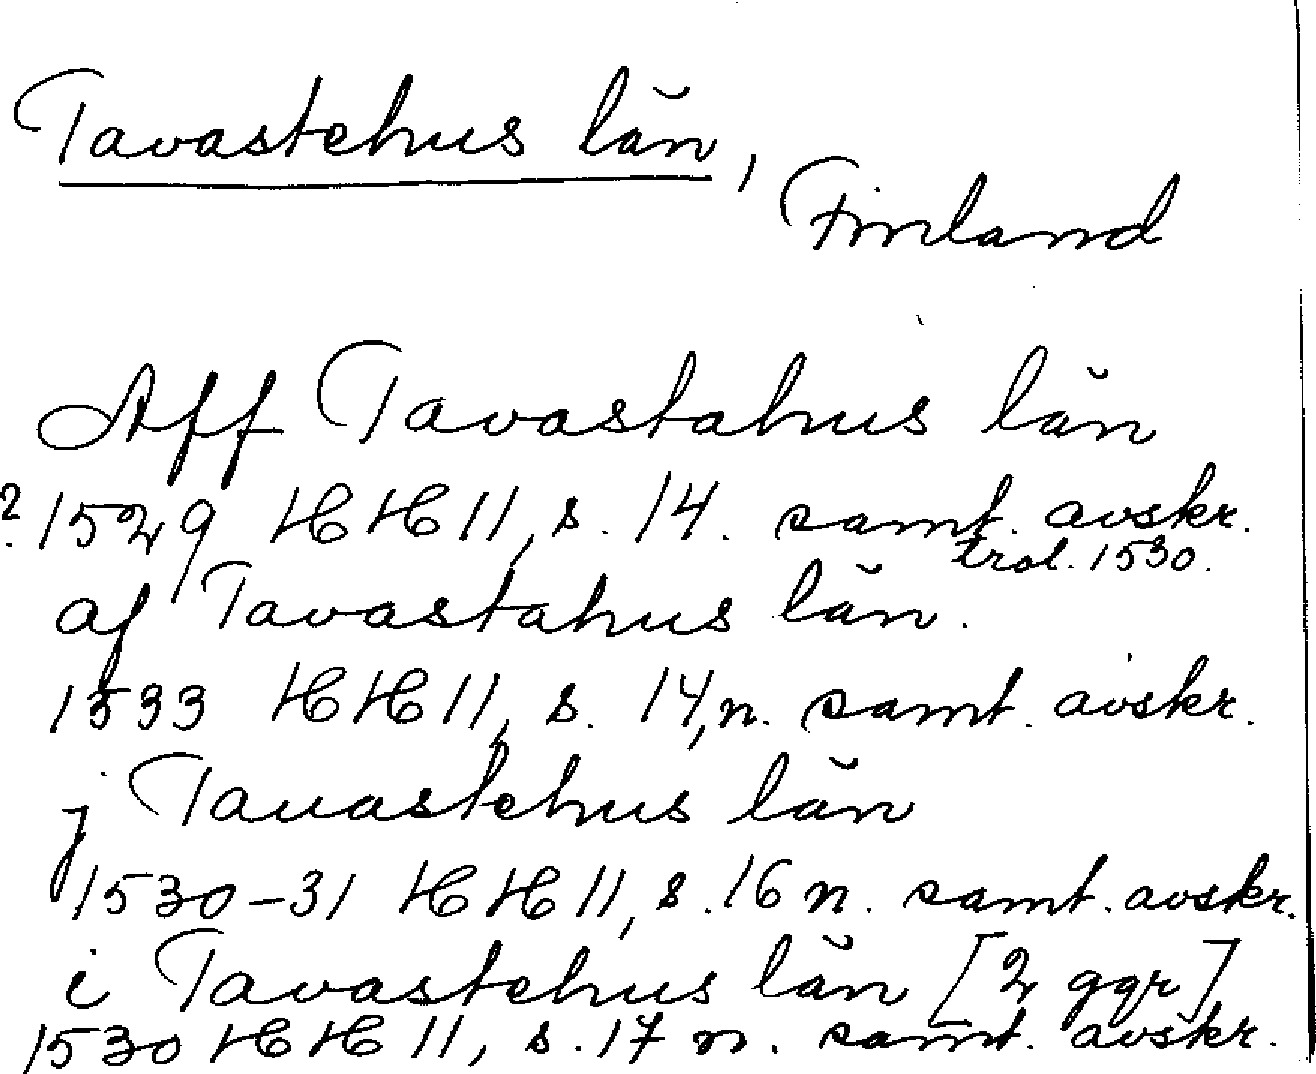 Tavastehus län,
Finland
Aff Tavastahus län
? 1529 HH 11, s. 14. samt. avskr.
trol. 1530.
af Tavastahus län.
1533 HH 11, s. 14, n. samt. avskr.
j Tauastehus län
1530-31 HH 11, s. 16 n. samt. avskr.
i Tavastehus län [2 ggr]
1530 HH 11, s. 17 n. samt. avskr.